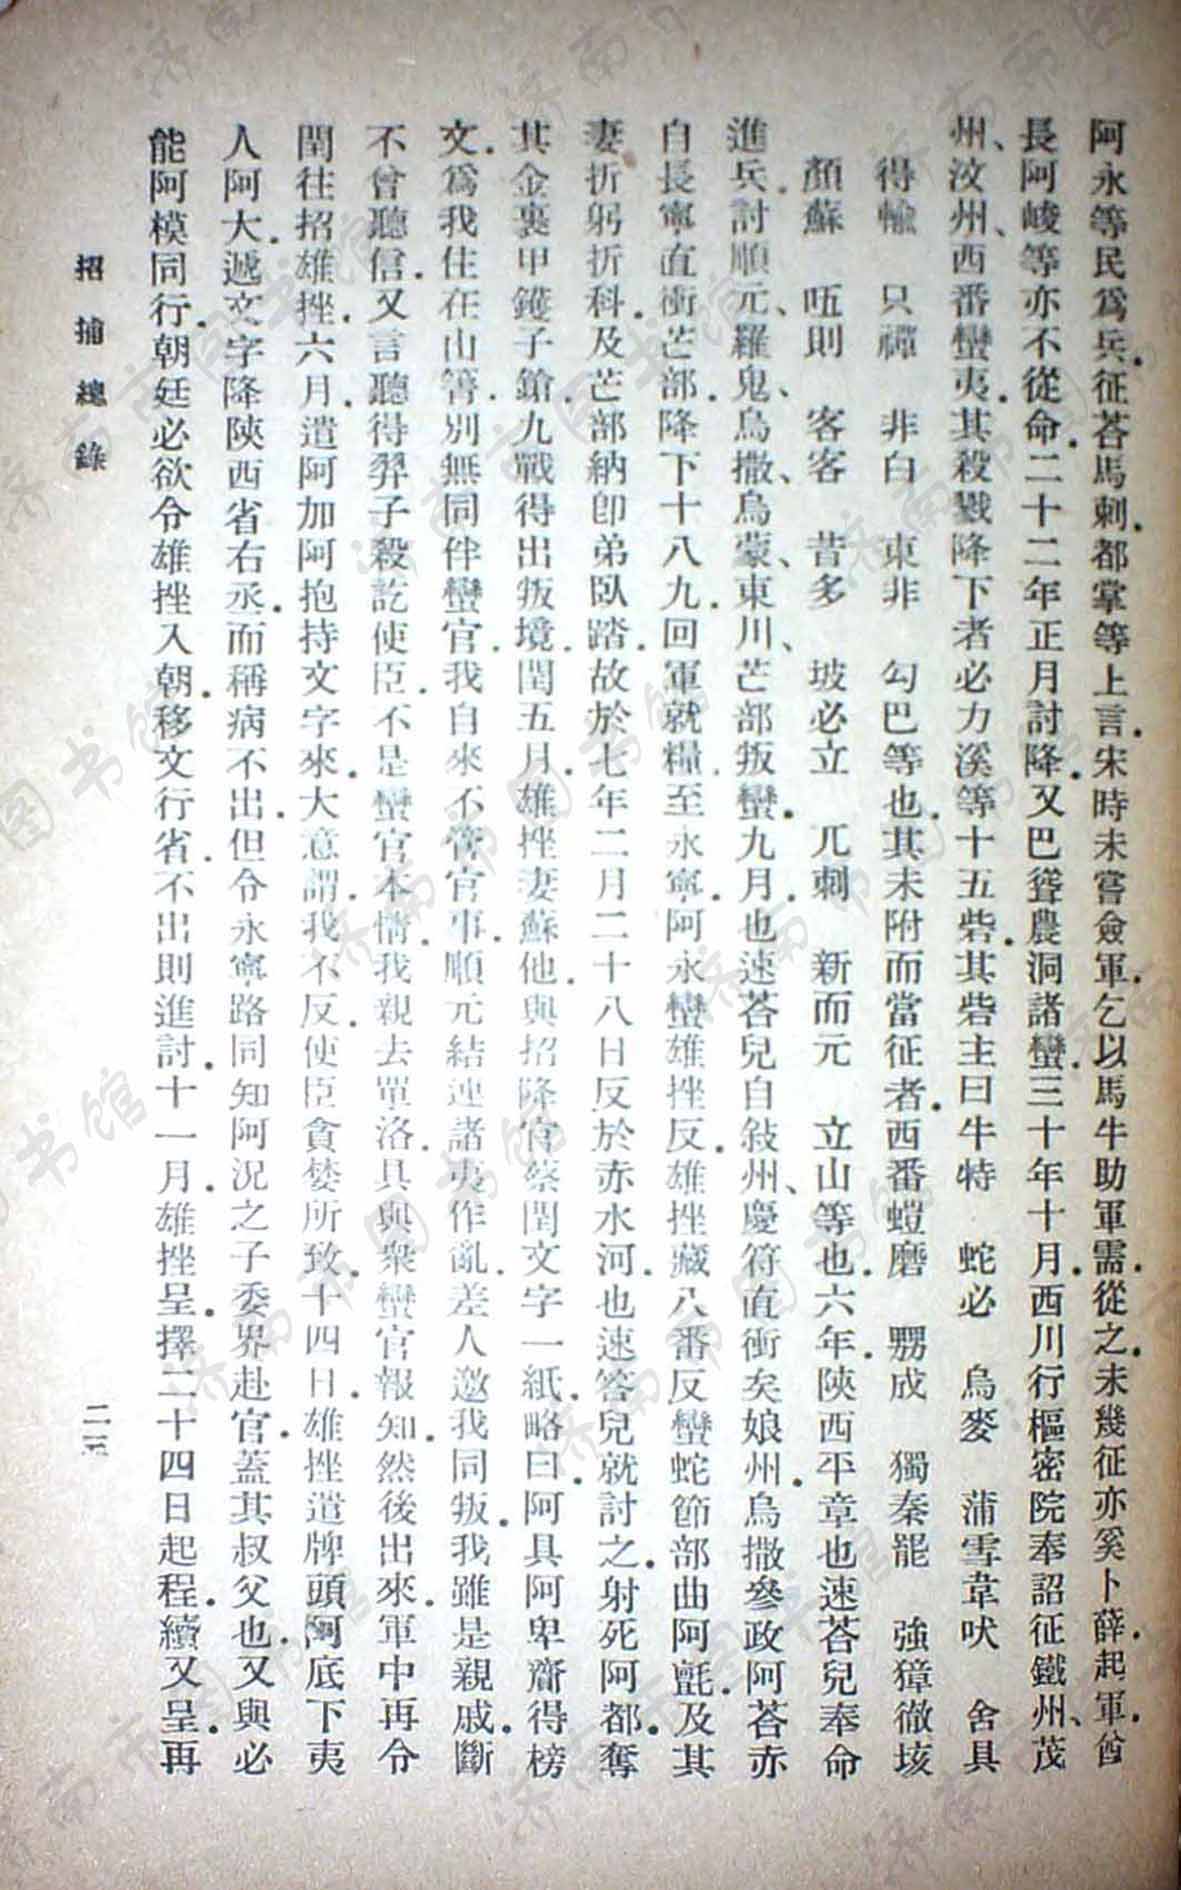 阿永等民爲兵．征荅馬剌．都掌等上言．宋時未嘗僉軍．乞以馬牛助軍需．從之．未幾征亦奚卜薛．起軍．酋
長阿峻等亦不從命．二十二年正月討降．又巴聳農洞諸蠻．三十年十月．西川行樞密院奉詔征鐵州、茂
州、汶州、西番蠻夷．其殺戮降下者必力溪等十五砦．其砦主曰牛特　蛇必　烏麥　蒲雪韋吠　舍具
得輸　只禪　非白　東非　勾巴等也．其未附而當征者．西番螘磨　翾成　獨秦罷　強獐徹垓
顏蘇　咓則　客客　昔多　坡必立　兀剌　新而元　立山等也．六年．陝西平章也速荅兒奉命
進兵．討順元、羅鬼、烏撒、烏蒙、東川、芒部叛蠻．九月．也速荅兒自敍州、慶符直衝矣娘州．烏撒參政阿荅赤
自長寧直衝芒部．降下十八九．回軍就糧．至永寧．阿永蠻雄挫反．雄挫藏八番反蠻蛇節部曲阿氈．及其
妻折躬折科．及芒部納卽弟臥踏．故於七年二月二十八日反於赤水河．也速答兒就討之．射死阿都．奪
其金裹甲鑓子鎗．九戰得出叛境．閏五月．雄挫妻蘇他．與招降官蔡閏文字一紙．略曰．阿具阿卑齎得榜
文．爲我住在山箐．別無同伴蠻官．我自來不管官事．順元結連諸夷作亂．差人邀我同叛．我雖是親戚．斷
不曾聽信．又言聽得羿子殺訖使臣．不是蠻官本情．我親去單洛．具與衆蠻官報知．然後出來．軍中再令
閏往招雄挫．六月．遣阿加阿抱持文字來．大意謂．我不反．使臣貪婪所致．十四日．雄挫遣牌頭阿底下夷
人阿大．遞文字降陝西省右丞．而稱病不出．但令永寧路同知阿況之子委界赴官．蓋其叔父也．又與必
能阿模同行．朝廷必欲令雄挫入朝．移文行省．不出則進討．十一月．雄挫呈．擇二十四日起程．續又呈．再
招捕總錄
二五